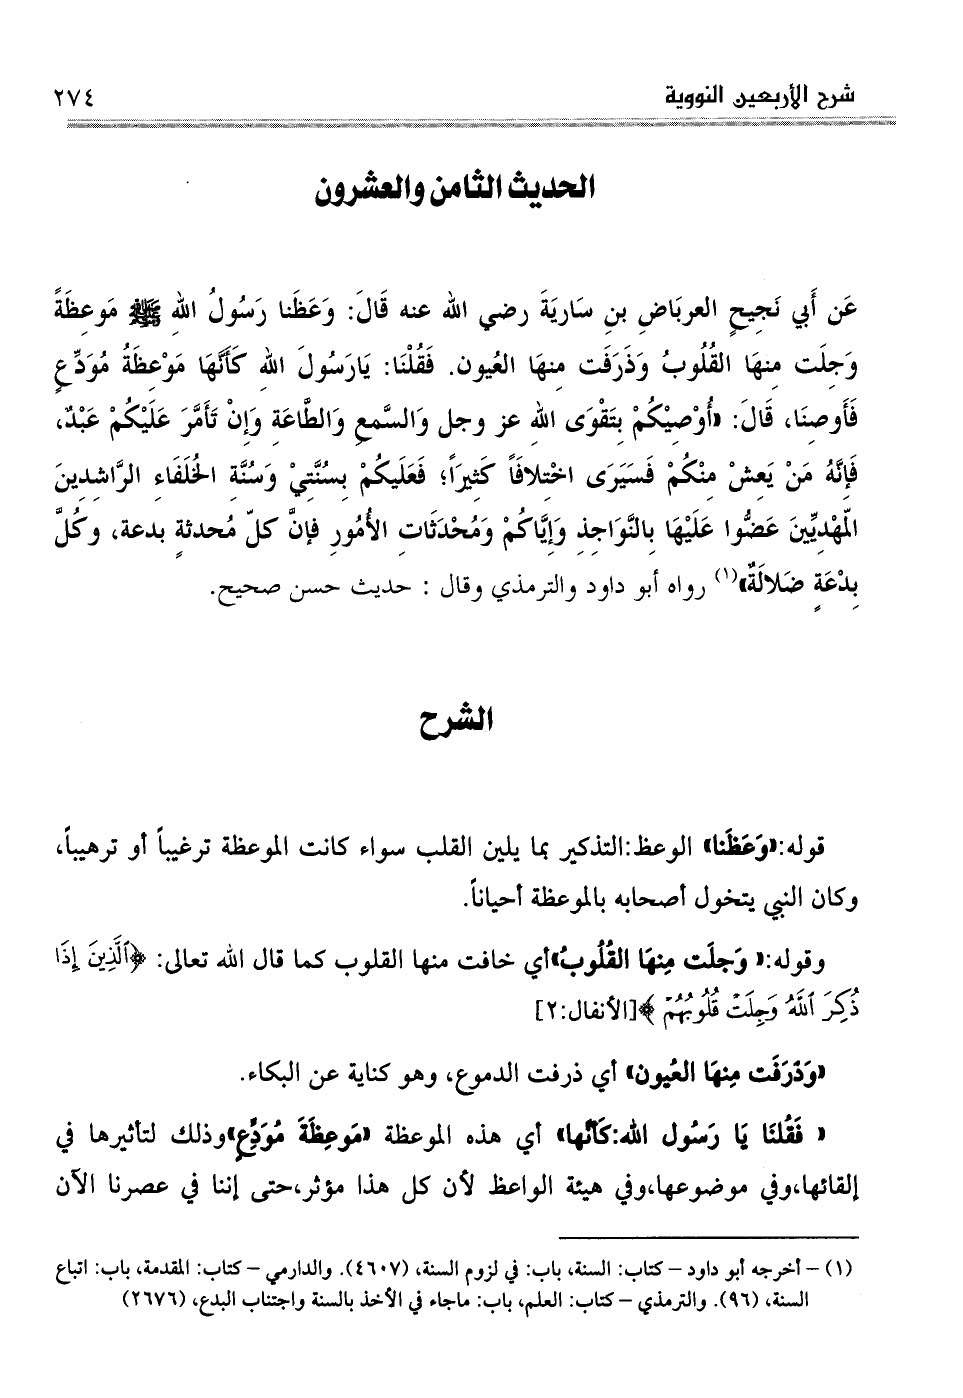 شرح الأربعين النووية ٢٧٤
الحديث الثامن والعشرون
عَن أَبي نَجيحٍ العربَاضِ بنِ سَاريَةَ رضي الله عنه قَالَ: وَعَظَنا رَسُولُ اللهِ ﷺ مَوعِظَةً
وَجِلَت مِنهَا القُلُوبُ وَذَرَفَت مِنهَا العُيون. فَقُلْنَا: يَارَسُولَ اللهِ كَأَنَّهَا مَوْعِظَةُ مُوَدِّعٍ
فَأَوصِنَا، قَالَ: «أُوْصِيْكُمْ بِتَقْوَى اللهِ عز وجل وَالسَّمعِ وَالطَّاعَةِ وَإِنْ تَأَمَّرَ عَلَيْكُمْ عَبْدٌ،
فَإِنَّهُ مَنْ يَعِشْ مِنْكُمْ فَسَيَرَى اختِلافَاً كَثِيرَاً؛ فَعَلَيكُمْ بِسُنَّتِيْ وَسُنَّةِ الخُلَفَاءِ الرَّاشِدينَ
المَهْدِيِّينَ عَضُّوا عَلَيْهَا بِالنَّوَاجِذِ وَإِيَّاكُمْ وَمُحْدَثَاتِ الأُمُورِ فإنَّ كلّ مُحدثةٍ بدعة، وكُلَّ
بِدْعَةٍ ضَلالَةٌ»(١) رواه أبو داود والترمذي وقال : حديث حسن صحيح.
الشرح
قوله:«وَعَظَنا» الوعظ:التذكير بما يلين القلب سواء كانت الموعظة ترغيباً أو ترهيباً،
وكان النبي يتخول أصحابه بالموعظة أحياناً.
وقوله:« وَجلَت مِنهَا القُلُوبُ»أي خافت منها القلوب كما قال الله تعالى: ﴿ٱلَّذِينَ إِذَا
ذُكِرَ ٱللَّهُ وَجِلَتْ قُلُوبُهُمْ ﴾[الأنفال:٢]
«وَذَرَفَت مِنهَا العُيون» أي ذرفت الدموع، وهو كناية عن البكاء.
« فَقُلنَا يَا رَسُول الله:كَأَنَّها» أي هذه الموعظة «مَوعِظَةَ مُوَدِّعٍ»وذلك لتأثيرها في
إلقائها،وفي موضوعها،وفي هيئة الواعظ لأن كل هذا مؤثر،حتى إننا في عصرنا الآن
(١) – أخرجه أبو داود – كتاب: السنة، باب: في لزوم السنة، (٤٦٠٧). والدارمي – كتاب: المقدمة، باب: اتباع
السنة، (٩٦). والترمذي – كتاب: العلم، باب: ماجاء في الأخذ بالسنة واجتناب البدع، (٢٦٧٦)